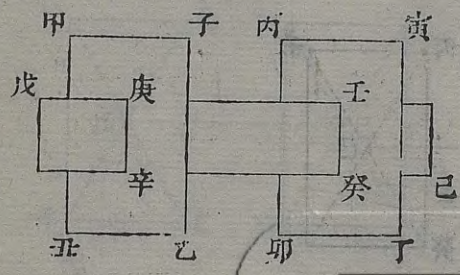 甲 子 丙 寅
戊 庚 壬
辛 癸 己
丑 乙 卯 丁